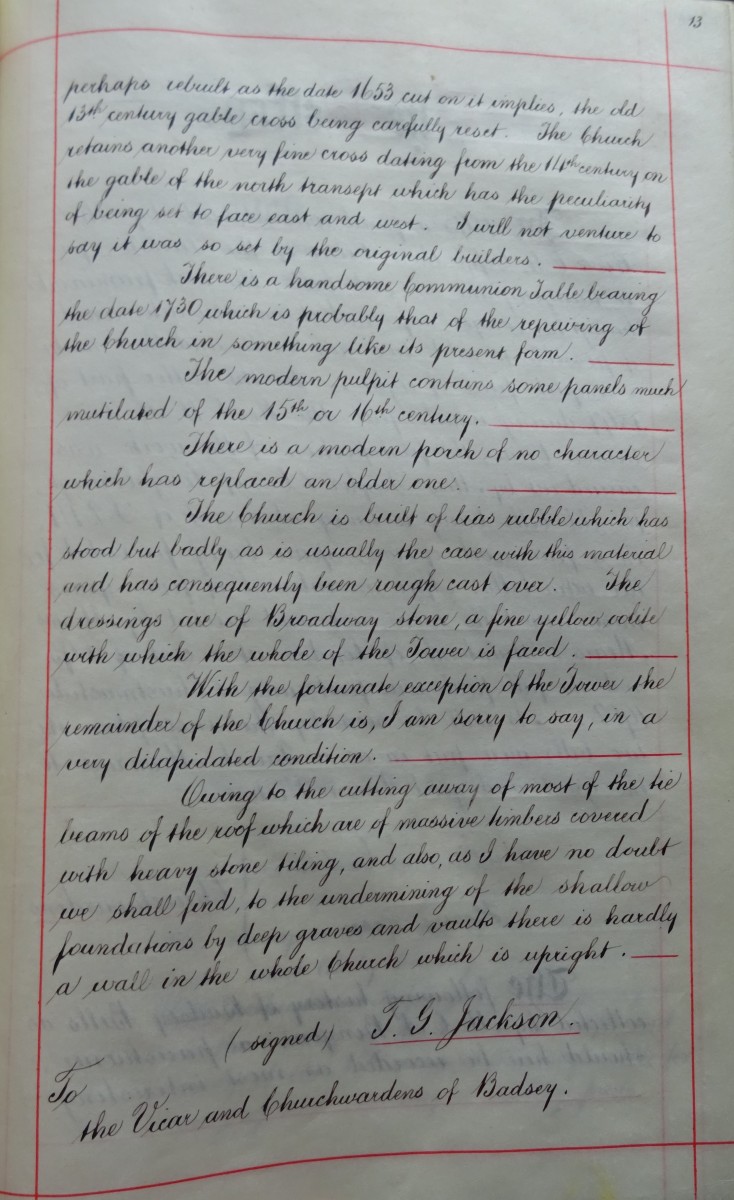 13
perhaps rebuilt as the date 1653 cut on it implies, the old
13th century gable cross being carefully reset. The Church
retains another very fine cross dating from the 14th century on
the gable of the north transept which has the peculiarity
of being set to face east and west. I will not venture to
say it was so set by the original builders.
There is a handsome Communion Table bearing
the date 1730 which is probably that of the repewing of
the Church in something like its present form.
The modern pulpit contains some panels much
mutilated of the 15th or 16th century.
There is a modern porch of no character
which has replaced an older one.
The Church is built of lias rubble which has
stood but badly as is usually the case with this material
and has consequently been rough cast over. The
dressings are of Broadway stone, a fine yellow oolite
with which the whole of the Tower is faced.
With the fortunate exception of the Tower the
remainder of the Church is, I am sorry to say, in a
very dilapidated condition.
Owing to the cutting away of most of the tie
beams of the roof which are of massive timbers covered
with heavy stone tiling, and also, as I have no doubt
we shall find, to the undermining of the shallow
foundations by deep graves and vaults there is hardly
a wall in the whole Church which is upright.
(signed) T. G. Jackson.
To
the Vicar and Churchwardens of Badsey.